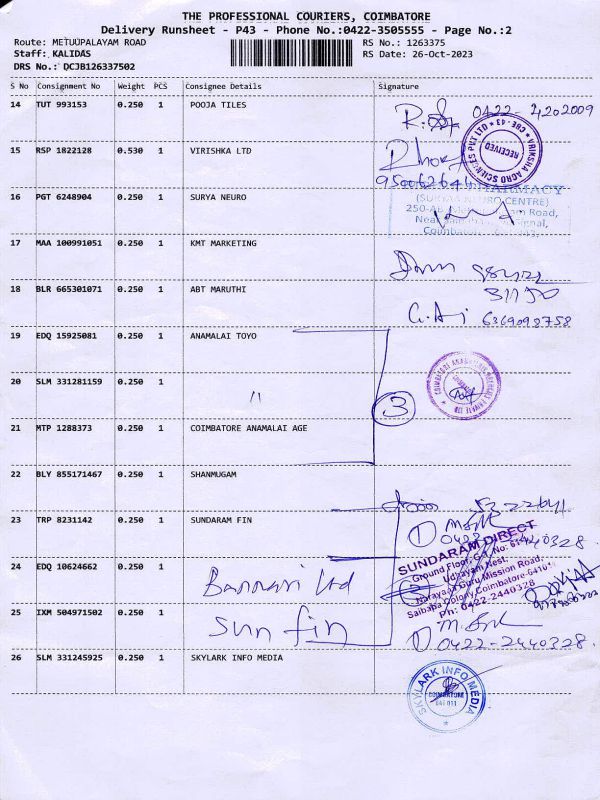 THE PROFESSIONAL COURIERS, COIMBATORE
Delivery Runsheet - P43 - Phone No.:0422-3505555 - Page No.:2
Route: METUUPALAYAM ROAD
RS No.: 1263375
Staff: KALIDAS
RS Date: 26-Oct-2023
DRS No.: QCJB126337502
S No Consignment No Weight PCS Consignee Details Signature
14 TUT 993153 0.250 1 POOJA TILES
0422- 4202009
15 RSP 1822128 0.530 1 VIRISHKA LTD
VRIKSHA AGRO SCIENCES PVT LTD * CBE-43 *
RECEIVED
16 PGT 6248904 0.250 1 SURYA NEURO
PHARMACY
(SURYAA NEURO CENTRE)
Road,
Signal,
17 MAA 100991051 0.250 1 KMT MARKETING
18 BLR 665301071 0.250 1 ABT MARUTHI
6369098758
19 EDQ 15925081 0.250 1 ANAMALAI TOYO
20 SLM 331281159 0.250 1 "
3
21 MTP 1288373 0.250 1 COIMBATORE ANAMALAI AGE
22 BLY 855171467 0.250 1 SHANMUGAM
23 TRP 8231142 0.250 1 SUNDARAM FIN
1
SUNDARAM DIRECT
Ground Floor,
Udhayam Nest,
Narayana Guru Mission Road,
Saibaba Colony, Coimbatore-641011
Ph: 0422-2440328
24 EDQ 10624662 0.250 1 Bannari ltd
25 IXM 504971502 0.250 1 Sun fin
1 0422-2440328
26 SLM 331245925 0.250 1 SKYLARK INFO MEDIA
SKYLARK INFO MEDIA
COIMBATORE
641 011